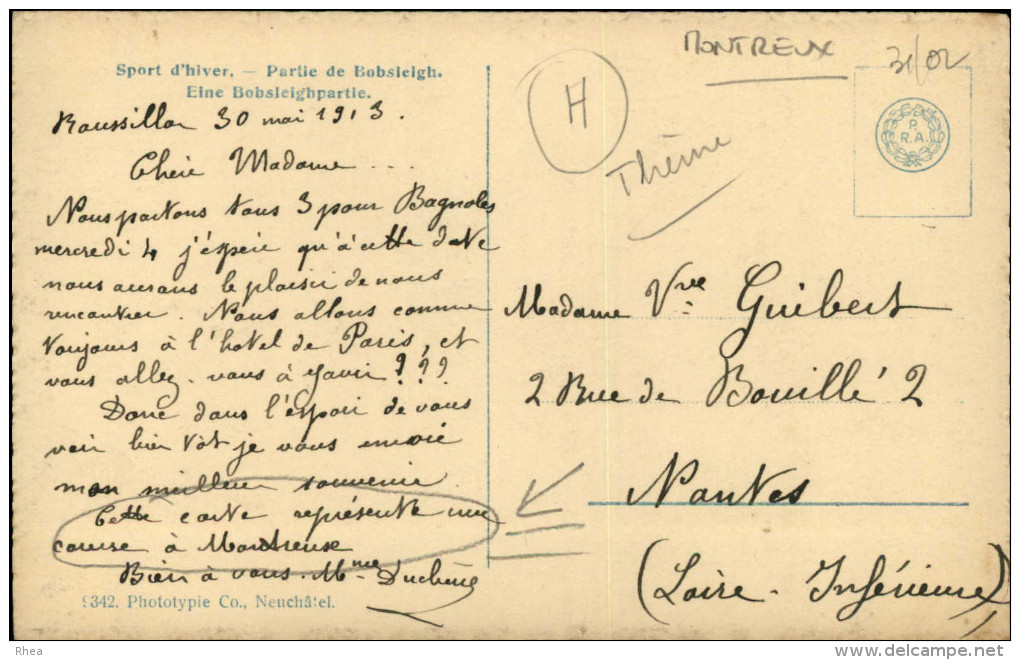 MONTREUX
31/02
H
Thème
Sport d'hiver. — Partie de Bobsleigh.
Eine Bobsleighpartie.
P.
R.A.
Roussillon 30 mai 1913.
Chère Madame ...
Nous partons tous 3 pour Bagnoles
mercredi 4 j'espère qu'à cette date
nous aurons le plaisir de nous
rencontrer. Nous allons comme
toujours à l'hotel de Paris, et
vous allez-vous à ???
Donc dans l'espoir de vous
voir bien tôt je vous envoie
mon meilleur souvenir.
Cette carte représente une
course à Montreux
Bien à vous. Mme Duchêne
9342. Phototypie Co., Neuchâtel.
Madame Vve Guibert
2 Rue de Bouillé 2
Nantes
(Loire-Inférieure)
Rhea
www.delcampe.net